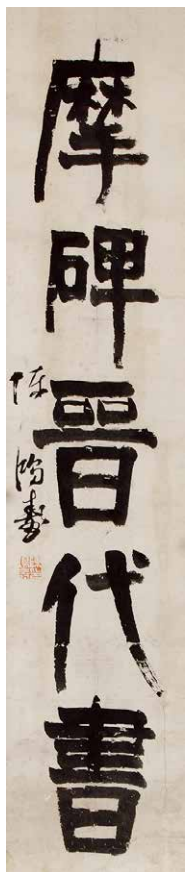 摩碑晉代書
陳鴻壽